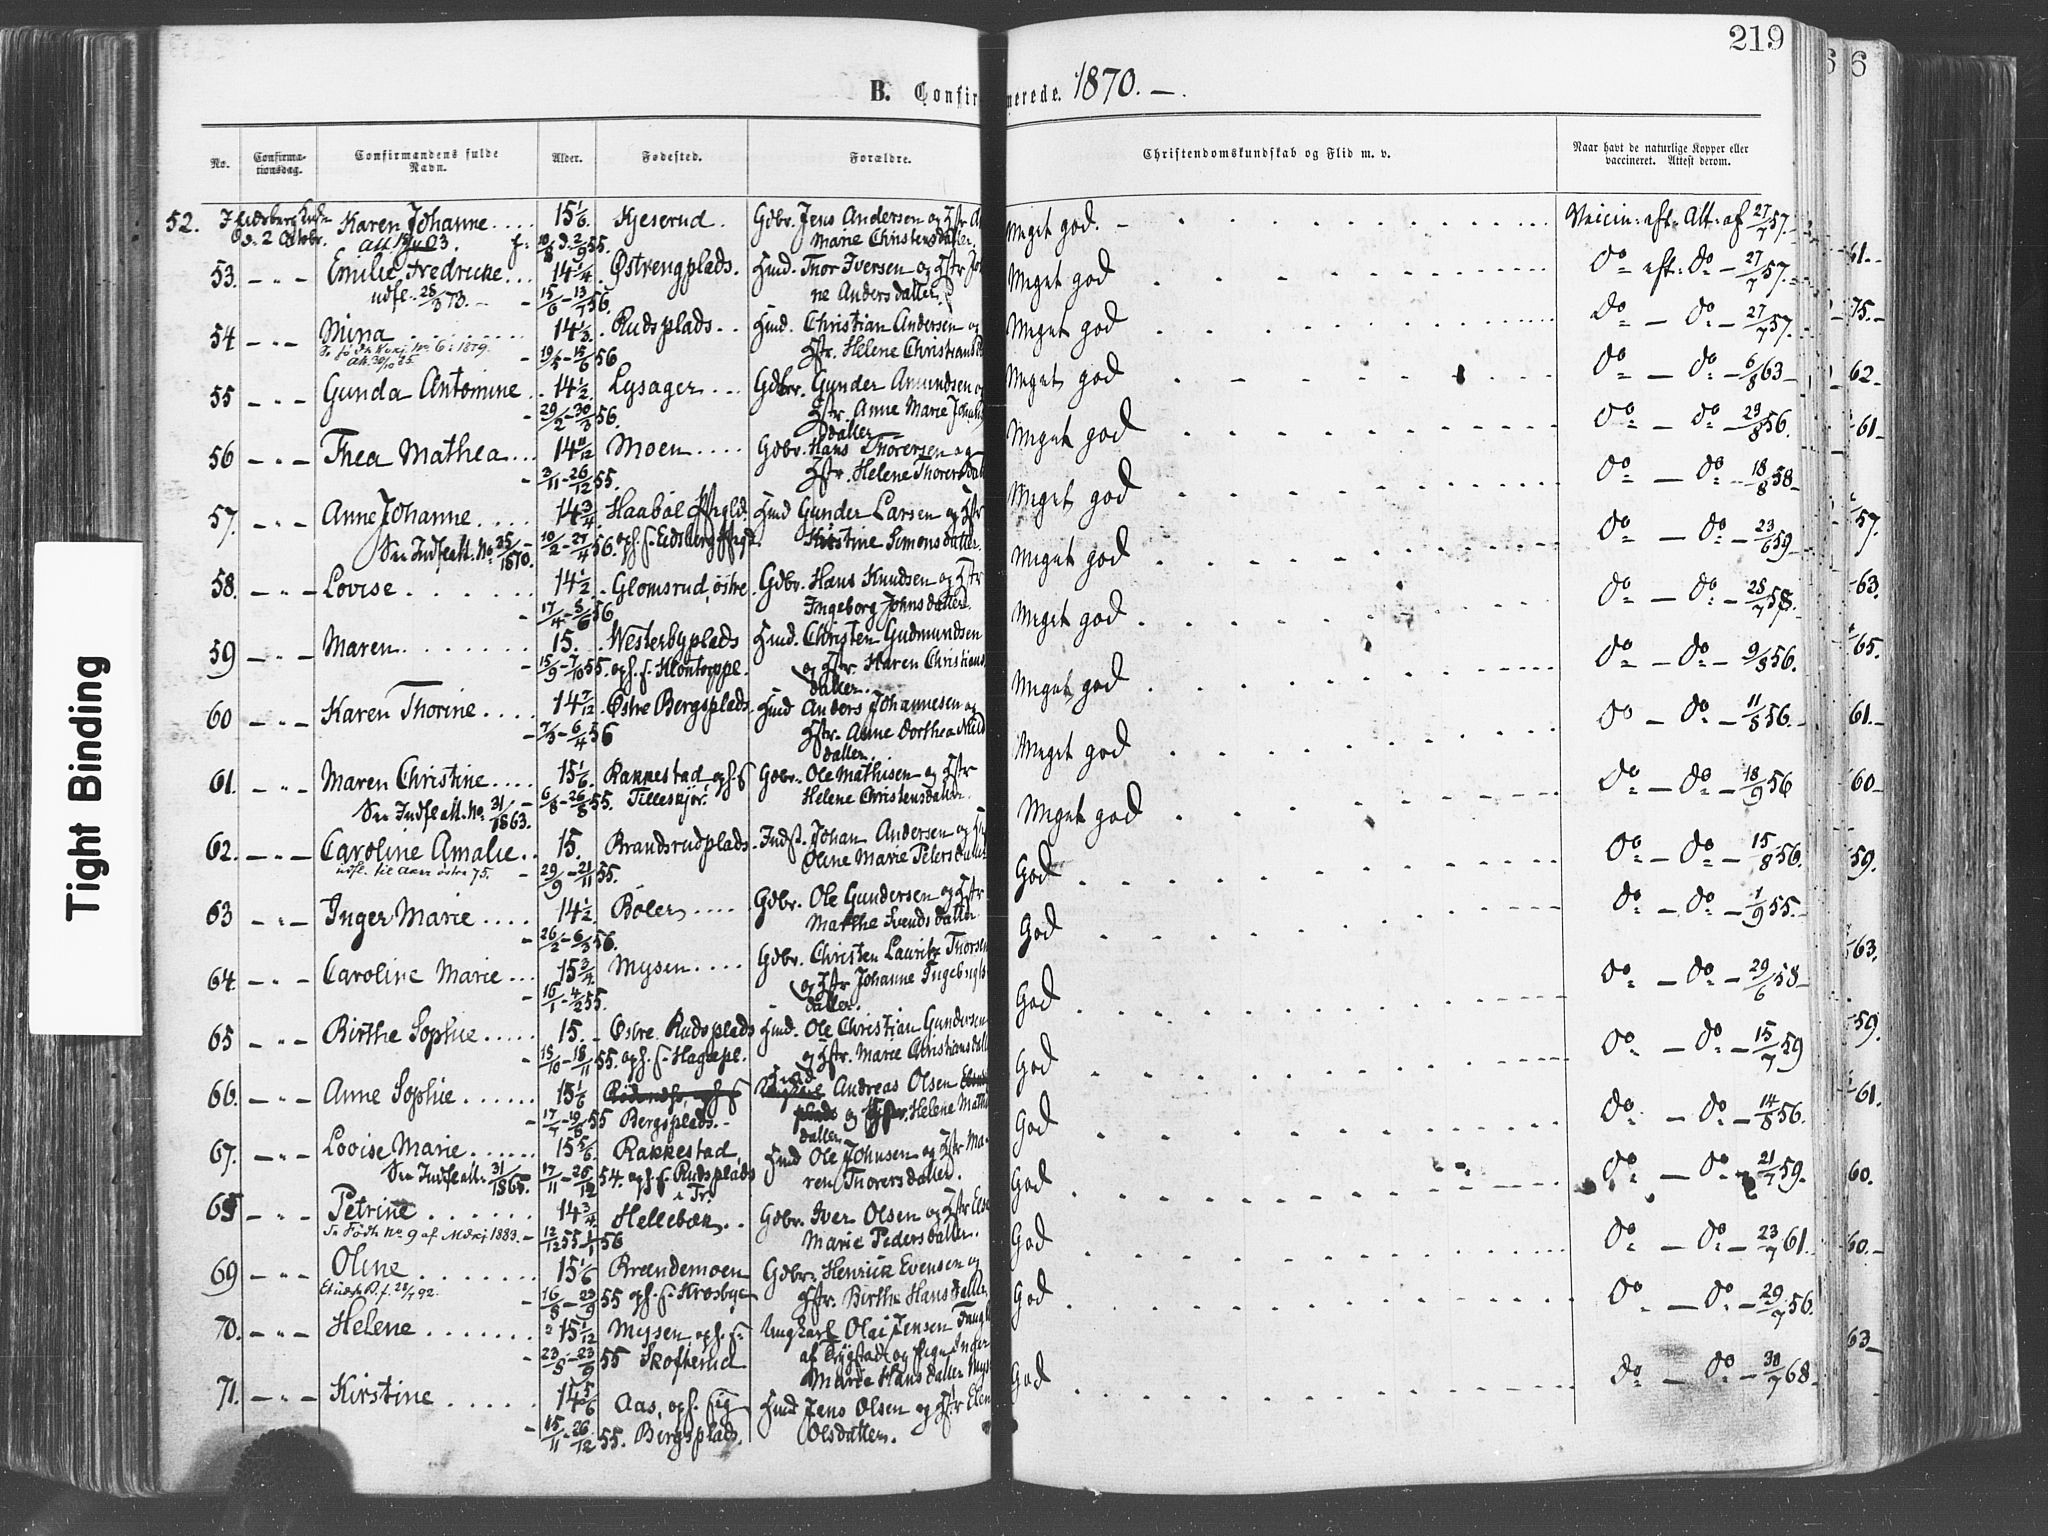 219
6 6
B. Confirmerede. 1870. —
No. Confirma-tionsdag. Confirmandens fulde Navn. Alder. Fødested. Forældre. Christendomskundskab og Flid m. v. Naar havt de naturlige Kopper eller vaccineret. Attest derom.
52. d. 2 Octobr. Karen Johanne 15 1/6 Gjeserud. Gdbr. Jens Andersen og Hstr Marie Christensdatter. Meget god. Vaccin: eft: Att: af 27/7 57.
f: 10/8 d. 2/9 55.
53. — " — Emilie Fredricke 14 1/4 Østrengplads. Hmd. Thor Iversen og Hstr Johanne Andersdatter. Meget god do eft: do — 27/7 57.
udfl. 28/3 73. 15/6 — 13/7 56.
54 — " — Mina 14 1/3 Rudsplads. Hmd. Christian Andersen og Hstr. Helene Christians Meget god do — do — 27/7 57.
19/5 — 15/6 56
55 — " — Gunda Antonine 14 1/2 Lysager Gdbr. Gunder Amundsen og Hstr. Anne Marie datter Meget god do — do — 6/8 63
29/2 — 30/3 56.
56 — " — Thea Mathea 14 10/12 Moen Gdbr. Hans Thorersen og Hstr. Helene Thorersdatter Meget god do — do — 29/8 56.
3/11 — 26/12 55.
57. — " — Anne Johanne 14 3/4 Haabøl Hmd Gunder Larsen og Hstr Kirstine Simonsdatter. Meget god do — do — 18/8 58
Se Indflatt. No 35/1870. 10/2 — 27/4 56.
58. — " — Lovise 14 1/2 Glomsrud, østre Gdbr. Hans Knudsen og Hstr Ingeborg Johnsdatter. Meget god do — do — 23/6 59
17/4 — 8/6 56
59 — " — Maren 15. Westerbyplads Hmd. Christen Gudmundsen og Hstr. Karen Christiansdatter. Meget god do — do — 28/7 58.
15/9 — 7/10 55.
60 — " — Karen Thorine 14 7/12 Østre Bergsplads. Hmd Anders Johannesen og Hstr. Anne Dorthea datter. Meget god do — do — 9/8 56.
7/3 — 6/4 56
61. — " — Maren Christine 15 1/6 Rakkestad, oph. f. Tilleskjør. Gdbr. Ole Mathisen og Hstr Helene Christensdatter. Meget god do — do — 11/8 56.
Se Indflatt. No 31/1863. 6/8 — 26/8 55.
62. — " — Caroline Amalie 15. Brandsrudplads Indst. Johan Andersen og Oline Marie Petersdatter Meget god do — do — 18/9 56
75. 29/9 — 21/11 55.
63 — " — Inger Marie 14 1/2 Bøler Gdbr. Ole Gundersen og Hstr Marthe Svendsdatter. God do — do — 15/8 56.
26/2 — 6/3 56.
64. — " — Caroline Marie 15 3/4 Mysen Gdbr. Christen Lauritz Thorsen og Hstr Johanne datter. God do — do — 1/9 55.
16/1 — 4/2 55.
65 — " — Birthe Sophie 15. Østre Rudsplads Hmd. Ole Christian Gundersen og Hstr. Marie Christiansdatter God do — do — 29/6 58
15/10 — 18/11 55. oph. f. Hagapl.
66. — " — Anne Sophie 15 1/6 Bergsplads. Hmd Andreas Olsen og Helene datter God do — do — 15/7 59
17/7 — 19/8 55
67. — " — Lovise Marie 15 5/6 Rakkestad, oph. f. Rudsplads i Tr. Hmd Ole Johnsen og Hstr Maren Thorersdatter. God do — do — 14/8 56.
Se Indflatt. 31/1865. 17/11 — 26/12 54.
68 — " — Petrine 14 3/4 Hellebæk Gdbr. Iver Olsen og Hstr Else Marie Pedersdatter. God do — do — 21/7 59.
No 9 af 1883. 12/12 55 1/1 56
69 — " — Oline 15 1/6 Brændemoen Gdbr. Henrick Evensen og Hstr. Birthe Hansdatter God do — do — 23/7 61.
16/8 — 23/9 55 oph. f. Krosbye
70. — " — Helene 15 1/12 Mysen, oph. f. Skofterud Ungkarl Olai Jensen af Trygstad og Pige Inger Marie Hansdatter God do — do — 29/7 56.
23/8 — 23/9 55
71. — " — Kirstine 14 5/6 Aas, oph. sig Bergsplads. Hmd Jens Olsen og Hstr Olsdatter. God do — do — 30/7 68
15/11 — 26/12 55.
61.
75.
62
61
57.
63.
65.
61.
60
59.
63.
59.
61.
60.
60.
63
Tight Binding